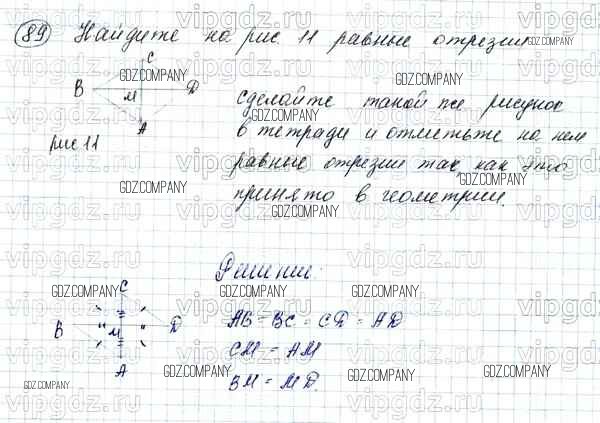 89 Найдите на рис. 11 равные отрезки
C
B M D
A
рис 11
сделайте такой же рисунок
в тетради и отметьте на нем
равные отрезки так как это
принято в геометрии.
Решение:
C
B M D
A
AB = BC = CD = AD
CM = AM
BM = MD.
GDZ.COMPANY
vipgdz.ru